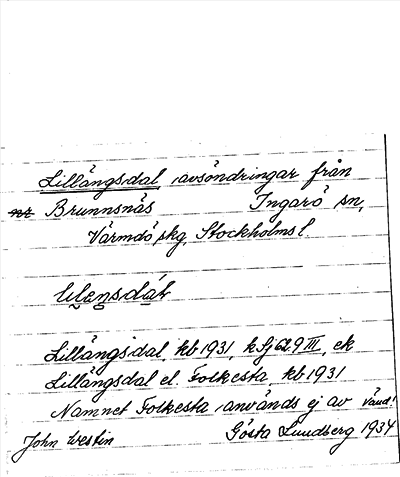 Lillängsdal, avsöndringar från
nr Brunnsnäs Ingarö sn,
Värmdö skg, Stockholms l.
Lillängsdal, kb 1931, k Sj 62.9 III, ek
Lillängsdal el. Folkesta, kb 1931
Namnet Folkesta används ej av
John Westin Gösta Lundberg 1934